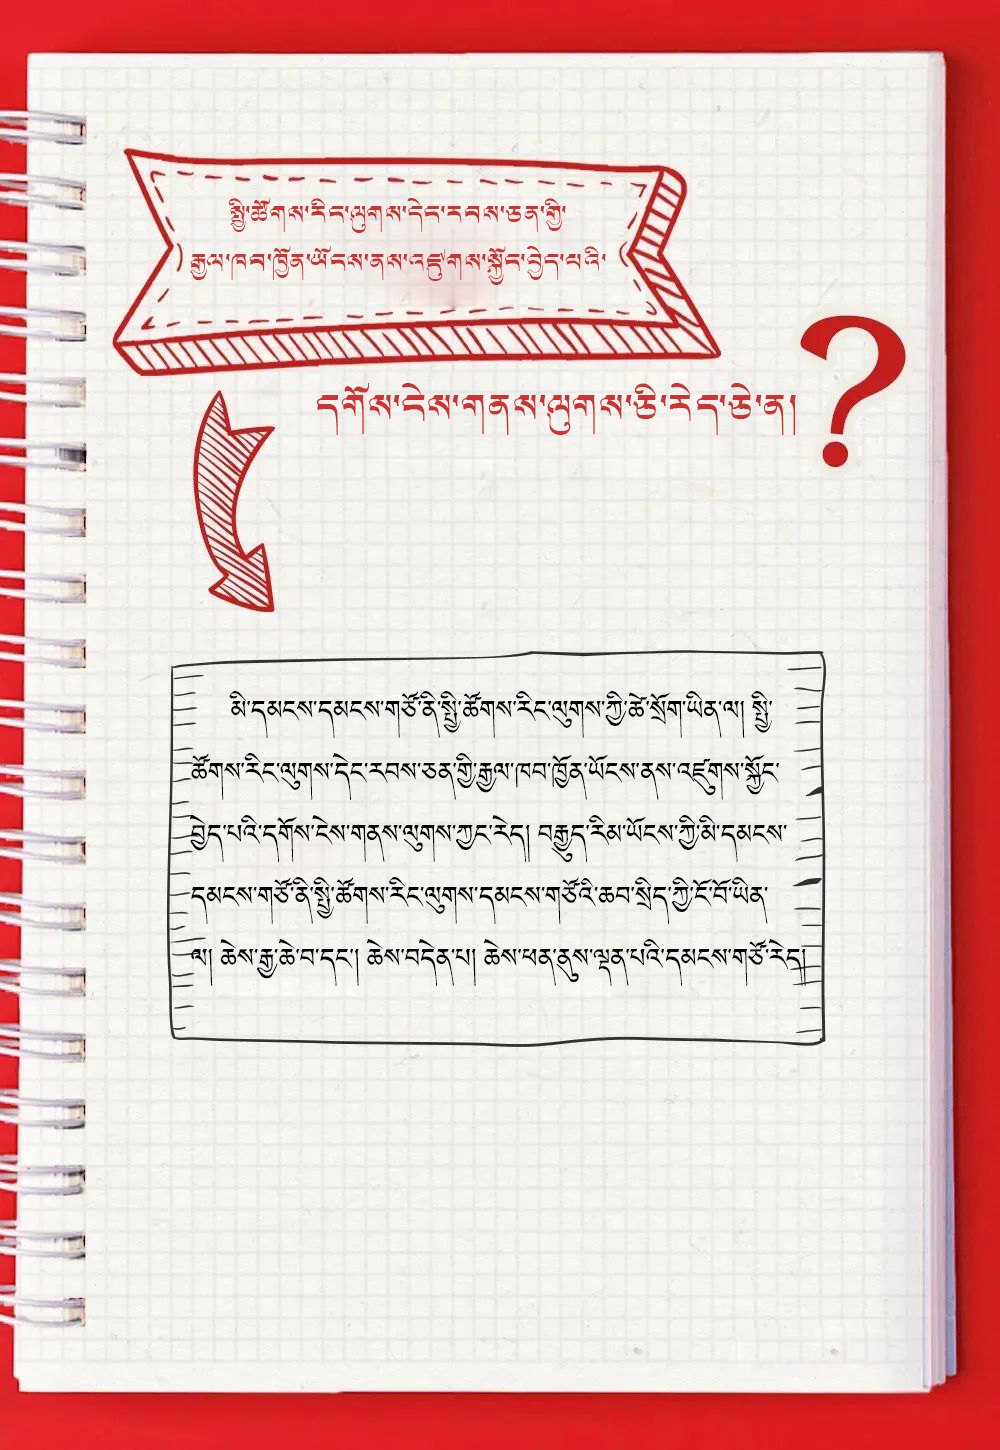 སྤྱི་ཚོགས་རིང་ལུགས་དེང་རབས་ཅན་གྱི་
རྒྱལ་ཁབ་ཁྱོན་ཡོངས་ནས་འཛུགས་སྐྱོང་བྱེད་པའི་
དགོས་ངེས་གནས་ལུགས་ཅི་རེད་ཅེ་ན།
?
མི་དམངས་དམངས་གཙོ་ནི་སྤྱི་ཚོགས་རིང་ལུགས་ཀྱི་ཚེ་སྲོག་ཡིན་ལ། སྤྱི་
ཚོགས་རིང་ལུགས་དེང་རབས་ཅན་ཀྱི་རྒྱལ་ཁབ་ཁྱོན་ཡོངས་ནས་འཛུགས་སྐྱོང་
བྱེད་པའི་དགོས་ངེས་གནས་ལུགས་ཀྱང་རེད། བརྒྱུད་རིམ་ཡོངས་ཀྱི་མི་དམངས་
དམངས་གཙོ་ནི་སྤྱི་ཚོགས་རིང་ལུགས་དམངས་གཙོའི་ཆབ་སྲིད་ཀྱི་ངོ་བོ་ཡིན་
ལ། ཆེས་རྒྱ་ཆེ་བ་དང་། ཆེས་བདེན་པ། ཆེས་ཕན་ནུས་ལྡན་པའི་དམངས་གཙོ་རེད།